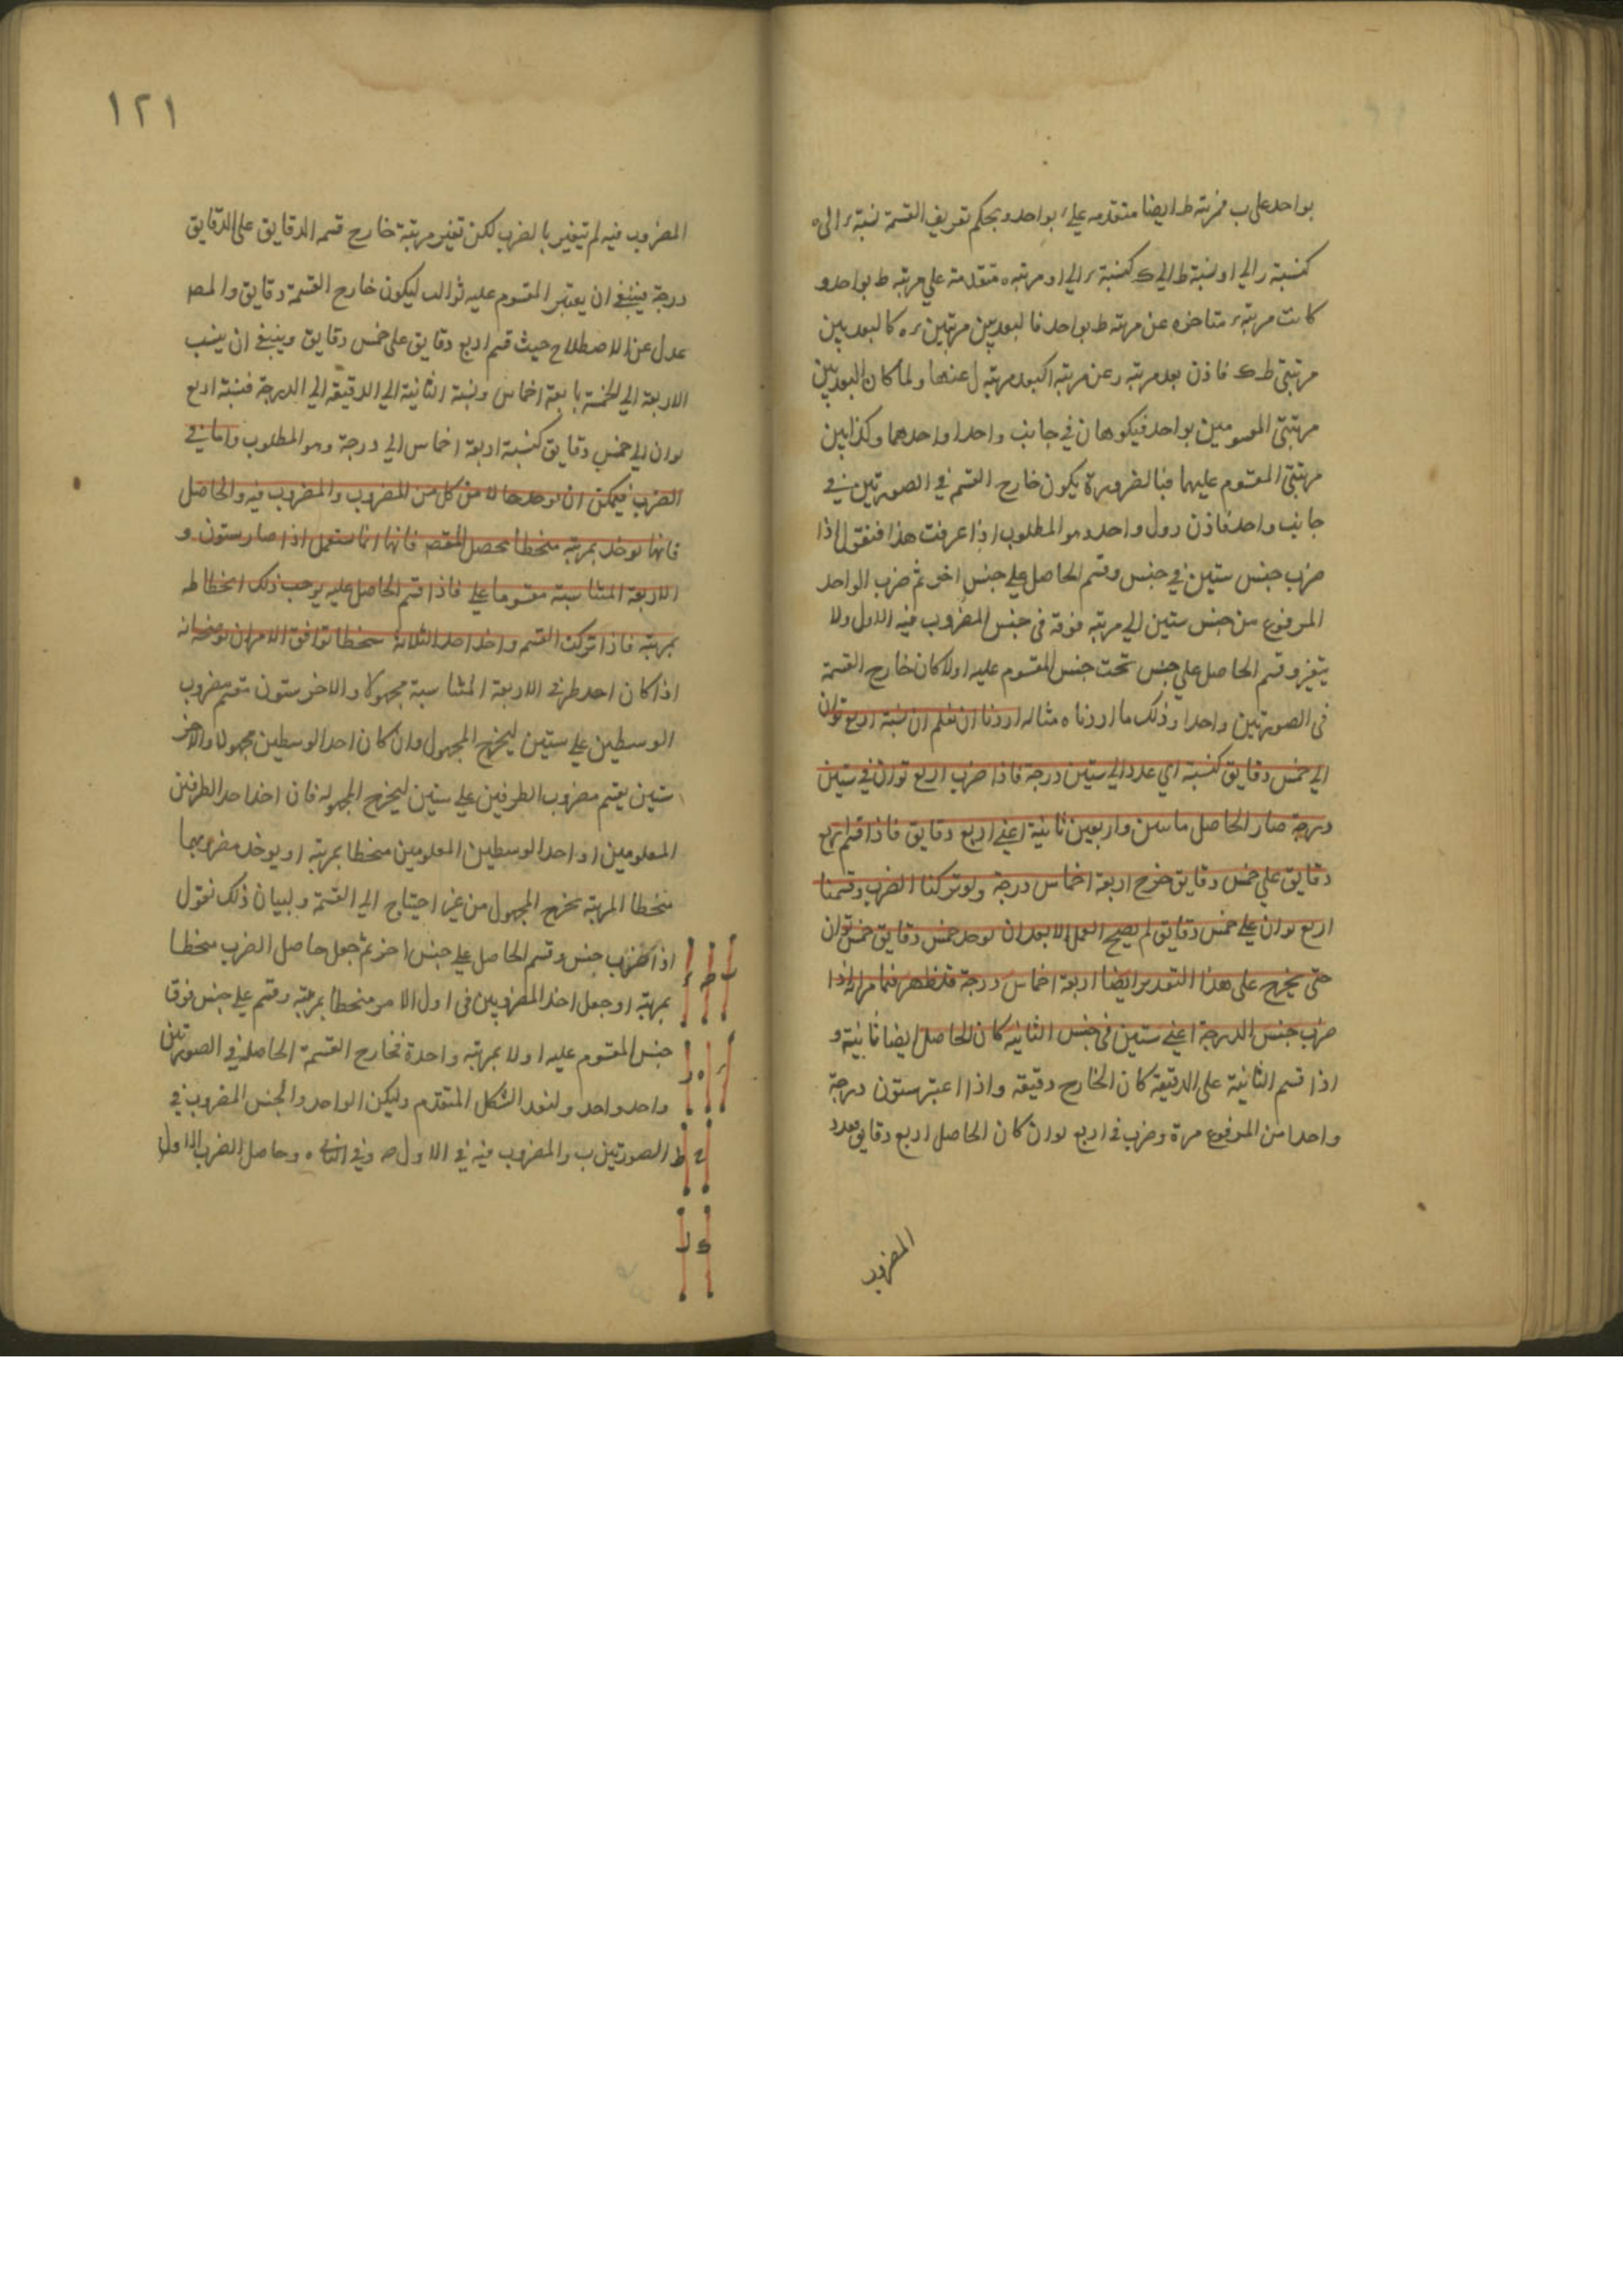 بواحد على ب فمرتبة ط ايضا متقدمه على ء بواحد وبحكم تعريف القسمة نسبة ء الى ه
كنسبة ر الي ا ونسبة ط الي ك كنسبة ء الي ا ومرتبه ه متقدمة علي مرتبه ط بواحد و
كانت مرتبه ء متاخره عن مرتبه ط بواحد فالبعد بين مرتبتين ء ه كالبعد بين
مرتبتي ط ك فاذن بعد مرتبه ر عن مرتبه ا كبعد مرتبه ل عنها ولما كان البعد بين
مرتبتي المقسومين بواحد فيكونان في جانب واحد او احدهما وكذا بين
مرتبتي المقسوم عليهما فبالضرورة يكون خارج القسم في الصورتين في
جانب واحد فاذن ر و ل واحد وهو المطلوب اذا عرفت هذا فنقول اذا
ضرب جنس ستين في جنس وقسم الحاصل علي جنس اخر ثم ضرب الواحد
المرفوع من جنس ستين الي مرتبه فوقه في جنس المضروب فيه الاول ولا
يتغير وقسم الحاصل علي جنس تحت جنس المقسوم عليه اولا كان خارج القسمة
في الصورتين واحدا وذلك ما اردناه مثاله اردنا ان نعلم ان نسبة اربع ثوان
الي خمس دقايق كنسبة اي عدد الي ستين درجة فاذا ضرب اربع ثوان في ستين
درجة صار الحاصل ماتين واربعين ثانية اعني اربع دقايق فاذا قسم اربع
دقايق علي خمس دقايق خرج اربعة اخماس درجة ولو تركنا الضرب وقسمنا
اربع ثوان علي خمس دقايق لم يصح العمل الا بعد ان يوخذ خمس دقايق خمس ثوان
حتى يخرج على هذا التقدير ايضا اربعة اخماس درجة فلنظهر فيما مر انه اذا
ضرب جنس الدرجة اعني ستين في جنس الثانيه كان الحاصل ايضا ثانية و
اذا قسم الثانية على الدقيقة كان الخارج دقيقه واذا اعتبر ستون درجة
واحدا من المرفوع مرة وضرب في اربع ثوان كان الحاصل اربع دقايق فعدد
المضروب
١٢١
المضروب فيه لم تيغير بالضرب لكن تغير مرتبة خارج قسمه الدقايق على الدقايق
درجة فينبغي ان يعتبر المقسوم عليه ثوالث ليكون خارج القسمة دقايق والمص
عدل عن الاصطلاح حيث قسم اربع دقايق على خمس دقايق وينبغي ان ينسب
الاربعة الي الخمسة باربعة اخماس ونسبة الثانية الي الدقيقه الي الدرجة فنسبة اربع
ثوان الي خمس دقايق كنسبة اربعة اخماس الي درجة وهو المطلوب واما في
الضرب فيمكن ان يوخذ حالا من كل من المضروب والمضروب فيه والحاصل
فانها يوخذ بمرتبه منخطا يحصل المقصم فانها انما يستعمل اذا صار ستون و
الاربعة المتناسبة مقسوما علي فاذا قسم الحاصل عليه يوجب ذلك انخطاطه
بمرتبه فاذا تركت القسم واخذ احد الثلاثة منخطا توافق الامران توضحه انه
اذا كان احد طرفي الاربعة المتناسبة مجهولا والاخر ستون قسم مضروب
الوسطين علي ستين ليخرج المجهول وان كان احد الوسطين مجهولا والاخر
ستين يقسم مضروب الطرفين علي ستين ليخرج المجهول فان اخذ احد الطرفين
المعلومين او احد الوسطين المعلومين منخطا بمرتبه او يوخذ مضروبهما
منخطا المرتبه يخرج المجهول من غير احتياج الي القسمة ولبيان ذلك نقول
اذا ضرب جنس وقسم الحاصل علي جنس اخر ثم جعل حاصل الضرب منخطا
بمرتبه او جعل احد المضروبين في اول الامر منخطا بمرتبه وقسم علي جنس فوق
جنس المقسوم عليه اولا بمرتبه واحدة فخارج القسمة الحاصلة في الصورتين
واحد واحد ولنعد الشكل المتقدم وليكن الواحد والجنس المضروب في
الصورتين ب والمضروب فيه في الاول ح وفي الثاني ه وحاصل الضرب الاول
ب ح ء
ء ا ه ر
ح ط
ك ل